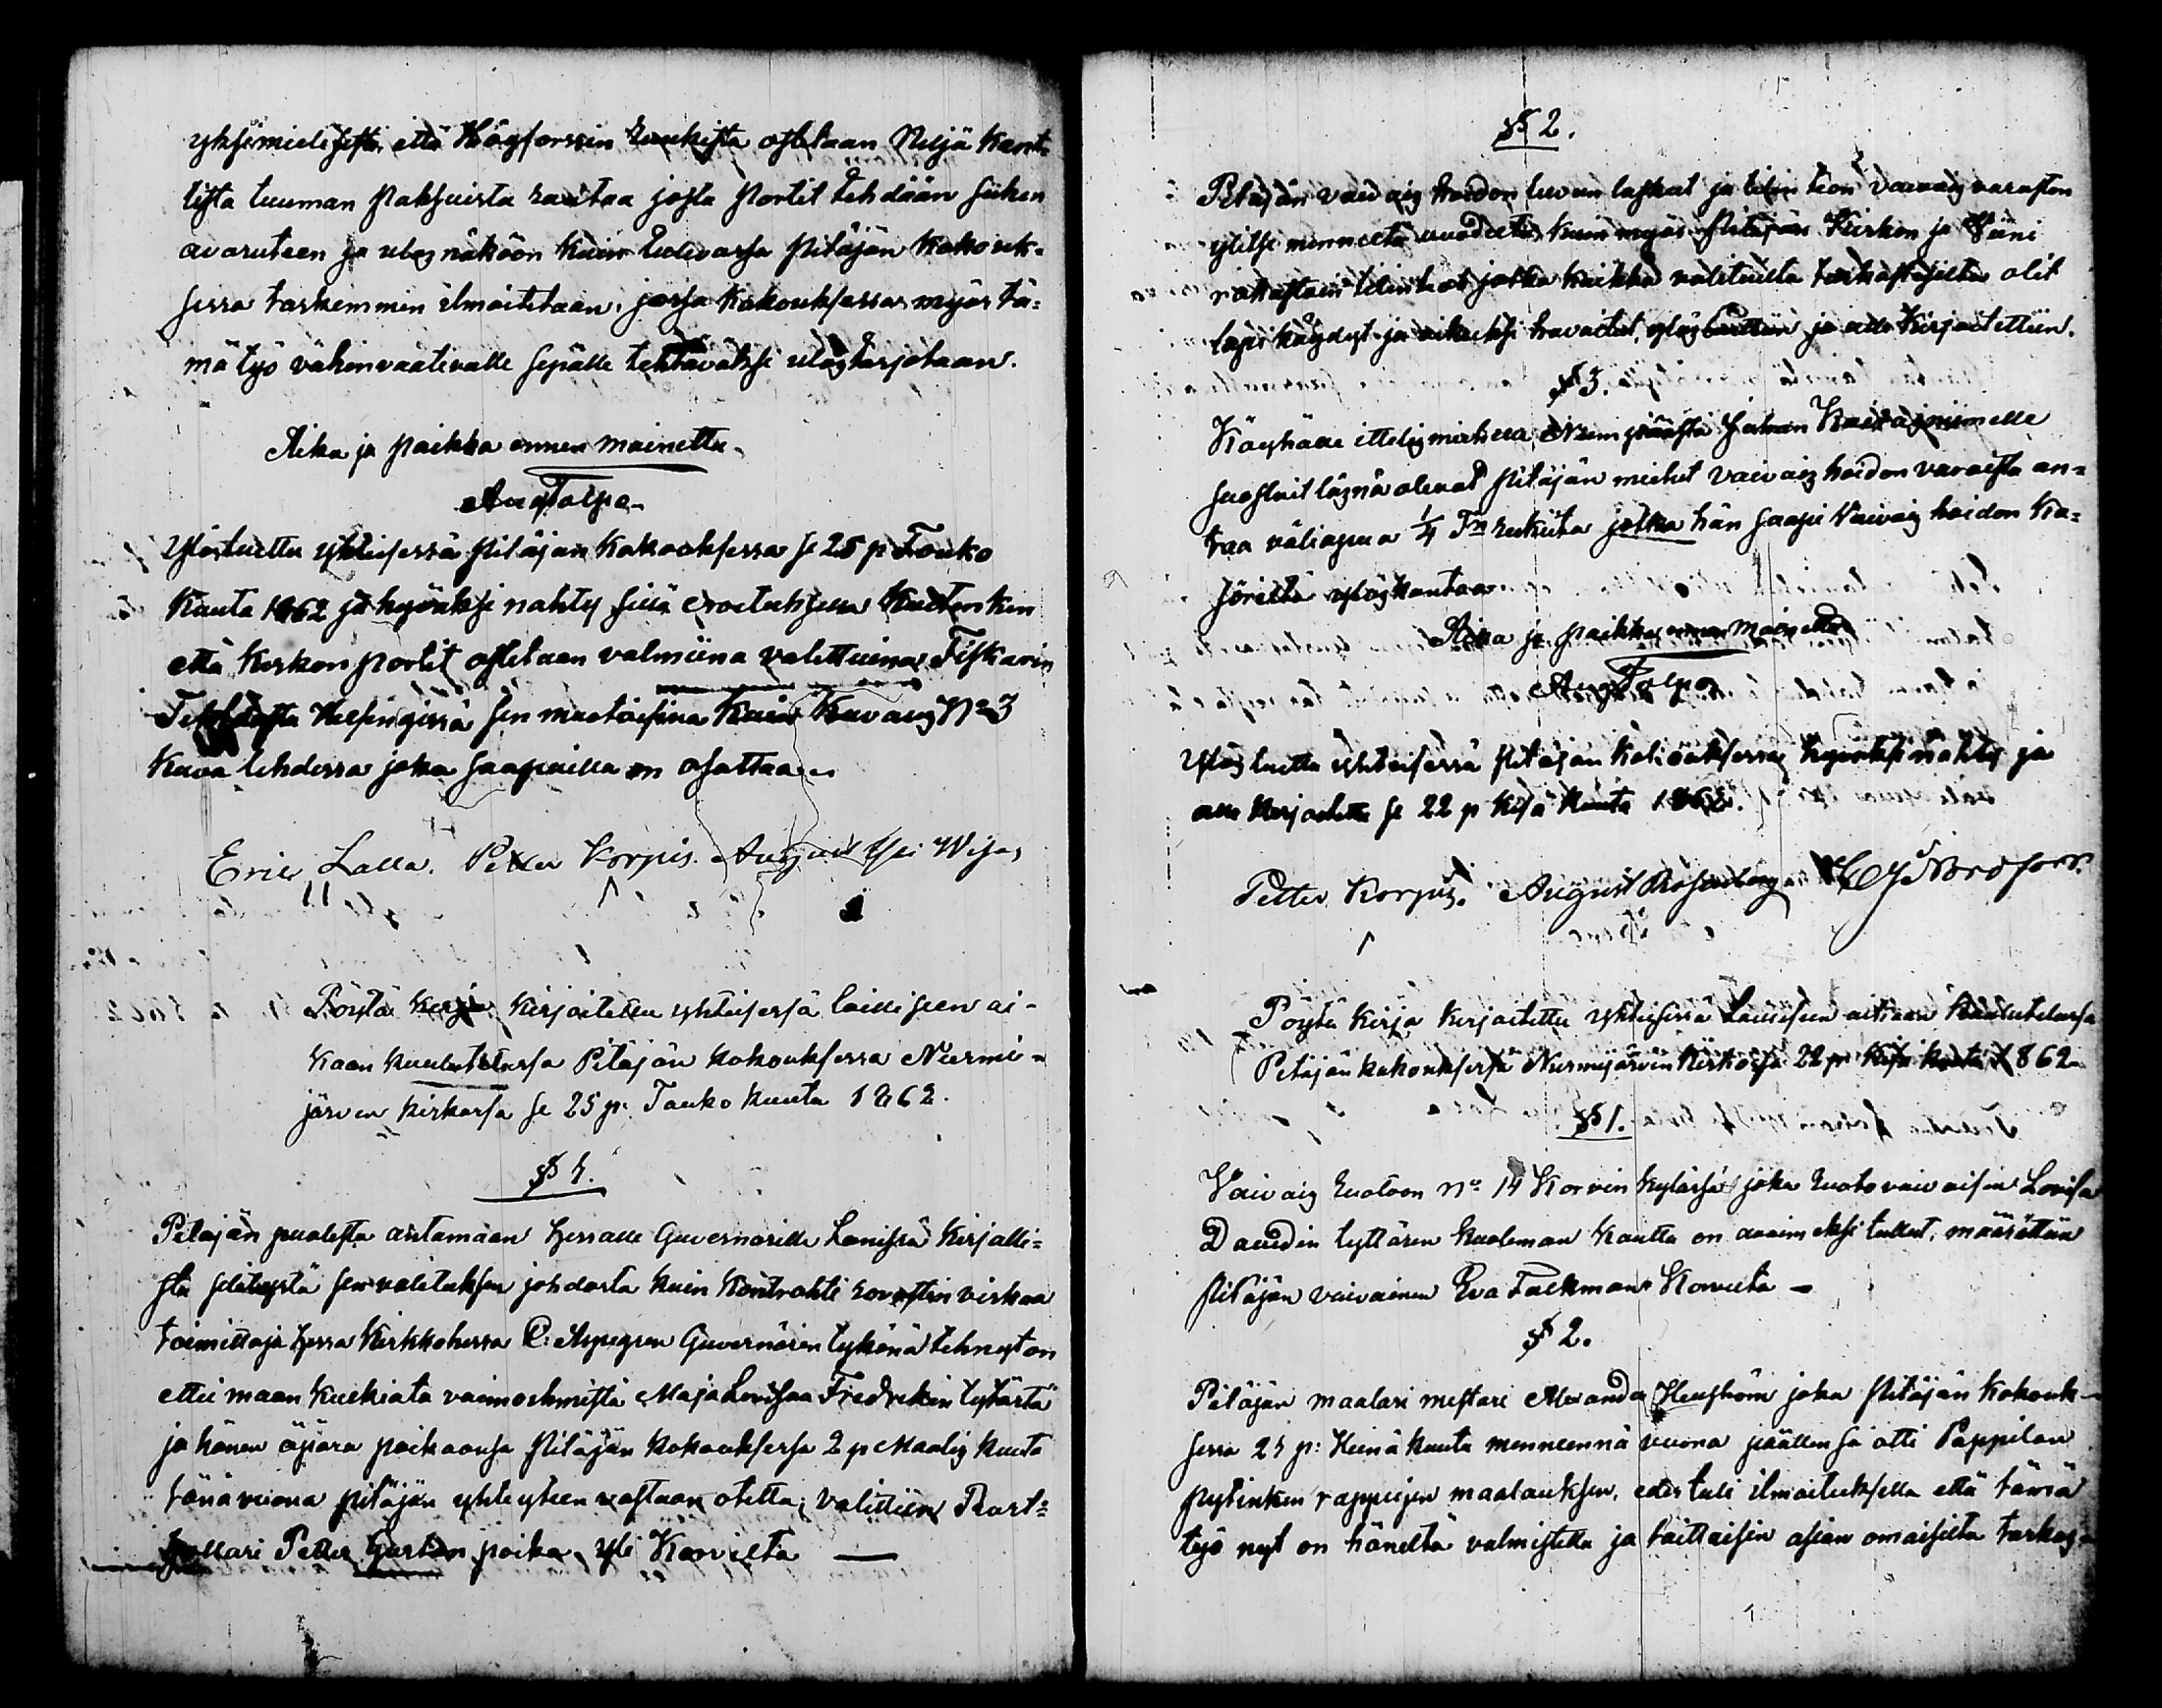 yksimielisesti että Högforssin ruukista ostetaan Neljä kant-
tista tuuman paksuista rautaa josta portit tehdään siihen
avaruteen ja ulos näköön kuin tulevassa pitäjän kokouk-
sessa tarkemmin ilmoitetaan, jossa kokouksessa myös tä-
mä työ vähin vaatevalle sepälle tehtäväksi ulostarjotaan.
Aika ja paikka ennen mainettu.
Aug Tolpo.
Ylösluettu yhteisessä pitäjän kokouksessa se 25 p Touko
Kuuta 1862 ja hyväksi nähty sillä eroituksella kuitenkin
että kirkon portit ostetaan valmiina valettuina Fiskarin
Tehtaasta Helsingissä sen muotoisina kuin kuvaus No 3
kuva lehdessa joka saapuilla on osottaa.
Eric Lalla. Petter Korpis. August Wija,
Pöytä kirja kirjoitettu yhteisessä laillisen ai-
kaan kuulutetussa Pitäjän kokouksessa Nurmi-
järven kirkossa se 25 p: Touko kuuta 1862.
§ 1.
Pitäjän puolesta antamaan herralle Guvernörille Länissä kirjalli-
sta selitystä sen valituksen johdosta kuin Kontrahti rovastin virkaa
toimittaja herra Kirkkoherra C: Aspegren Guvernörin tykönä tehnyt on
ettei maan kulkiata vaimoihmistä Maja Lovisaa Fredrikin tytärtä
ja hänen äpärä poikaansa pitäjän kokouksessa 2 p Maalis kuuta
tänä vuona pitäjän yhteyteen vastaan otettu; valittiin Rust-
hollari Petter Gustan poika Yli Korvilta —
§ 2.
Pitäjän vaivais hoidon luvun laskut ja tilin teon vaivais varaston
ylitse menneeltä vuodelta kuin myös pitäjän Kirkon ja Viini
rahastoin tilinteot jotka kaikki valituilta tarkastajilta olit
läpi käydyt ja oikiaksi havaitut, ylös luettiin ja alle kirjoitettiin.
§ 3.
Köyhälle ittellismiehelle Johan nimelle
suostuit läsnä olevat pitäjän miehet vaivais hoidon varoista an-
taa väliapua ¼ Tn rukiita jotka hän saapi Vaivais hoidon Ka-
söriltä ylöskantaa
Aika ja paikka ennen mainettu
Aug Tolpo
Ylös luettu yhteisessä pitäjän kokouksessa, hyväksi nähty ja
alle kirjoitettu se 22 p Kesä kuuta 1862.
Petter Korpis. August Rosenberg Nordfors.
Pöytä kirja kirjoitettu yhteisessä Laillisen aikaan kuulutetussa
Pitäjän kokouksessa Nurmijärven Kirkossa 22 p: Kesä kuuta 1862
§ 1.
Vaivais ruotoon No 14 Korven kylässä, joka ruotovaivaisen Lovisa
Davidin tyttären kuoleman kautta on avoimeksi tullut, määrättiin
pitäjän vaivainen Eva Fackman Korvelta —
§ 2.
Pitäjän maalari mestari Alexander joka pitäjän kokouk-
sessa 25 p: Heinä kuuta menneennä vuona päällensä otti Pappilan
pytinken rappuisen maalauksen, edes tuli ilmoituksella että tämä
työ nyt on häneltä valmistettu ja taittaisin asian omaisilta tarkas-